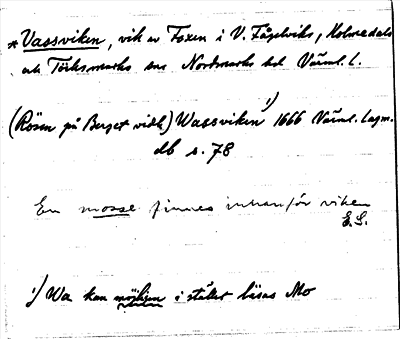 *Vassviken, vik av Foxen i V. Fågelviks, Holmedals
och Töcksmarks snr Nordmarks hd Värml. l.
(Rösen på Berget vidh) Wassviken 1) 1666 Värml. Lagm.
db s. 78
En mosse finnes innanför viken
E.S.
1) Wa kan möjligen i stället läsas Mo